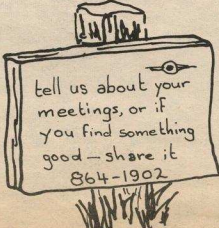 tell us about your
meetings, or if
you find something
good — share it
864-1902